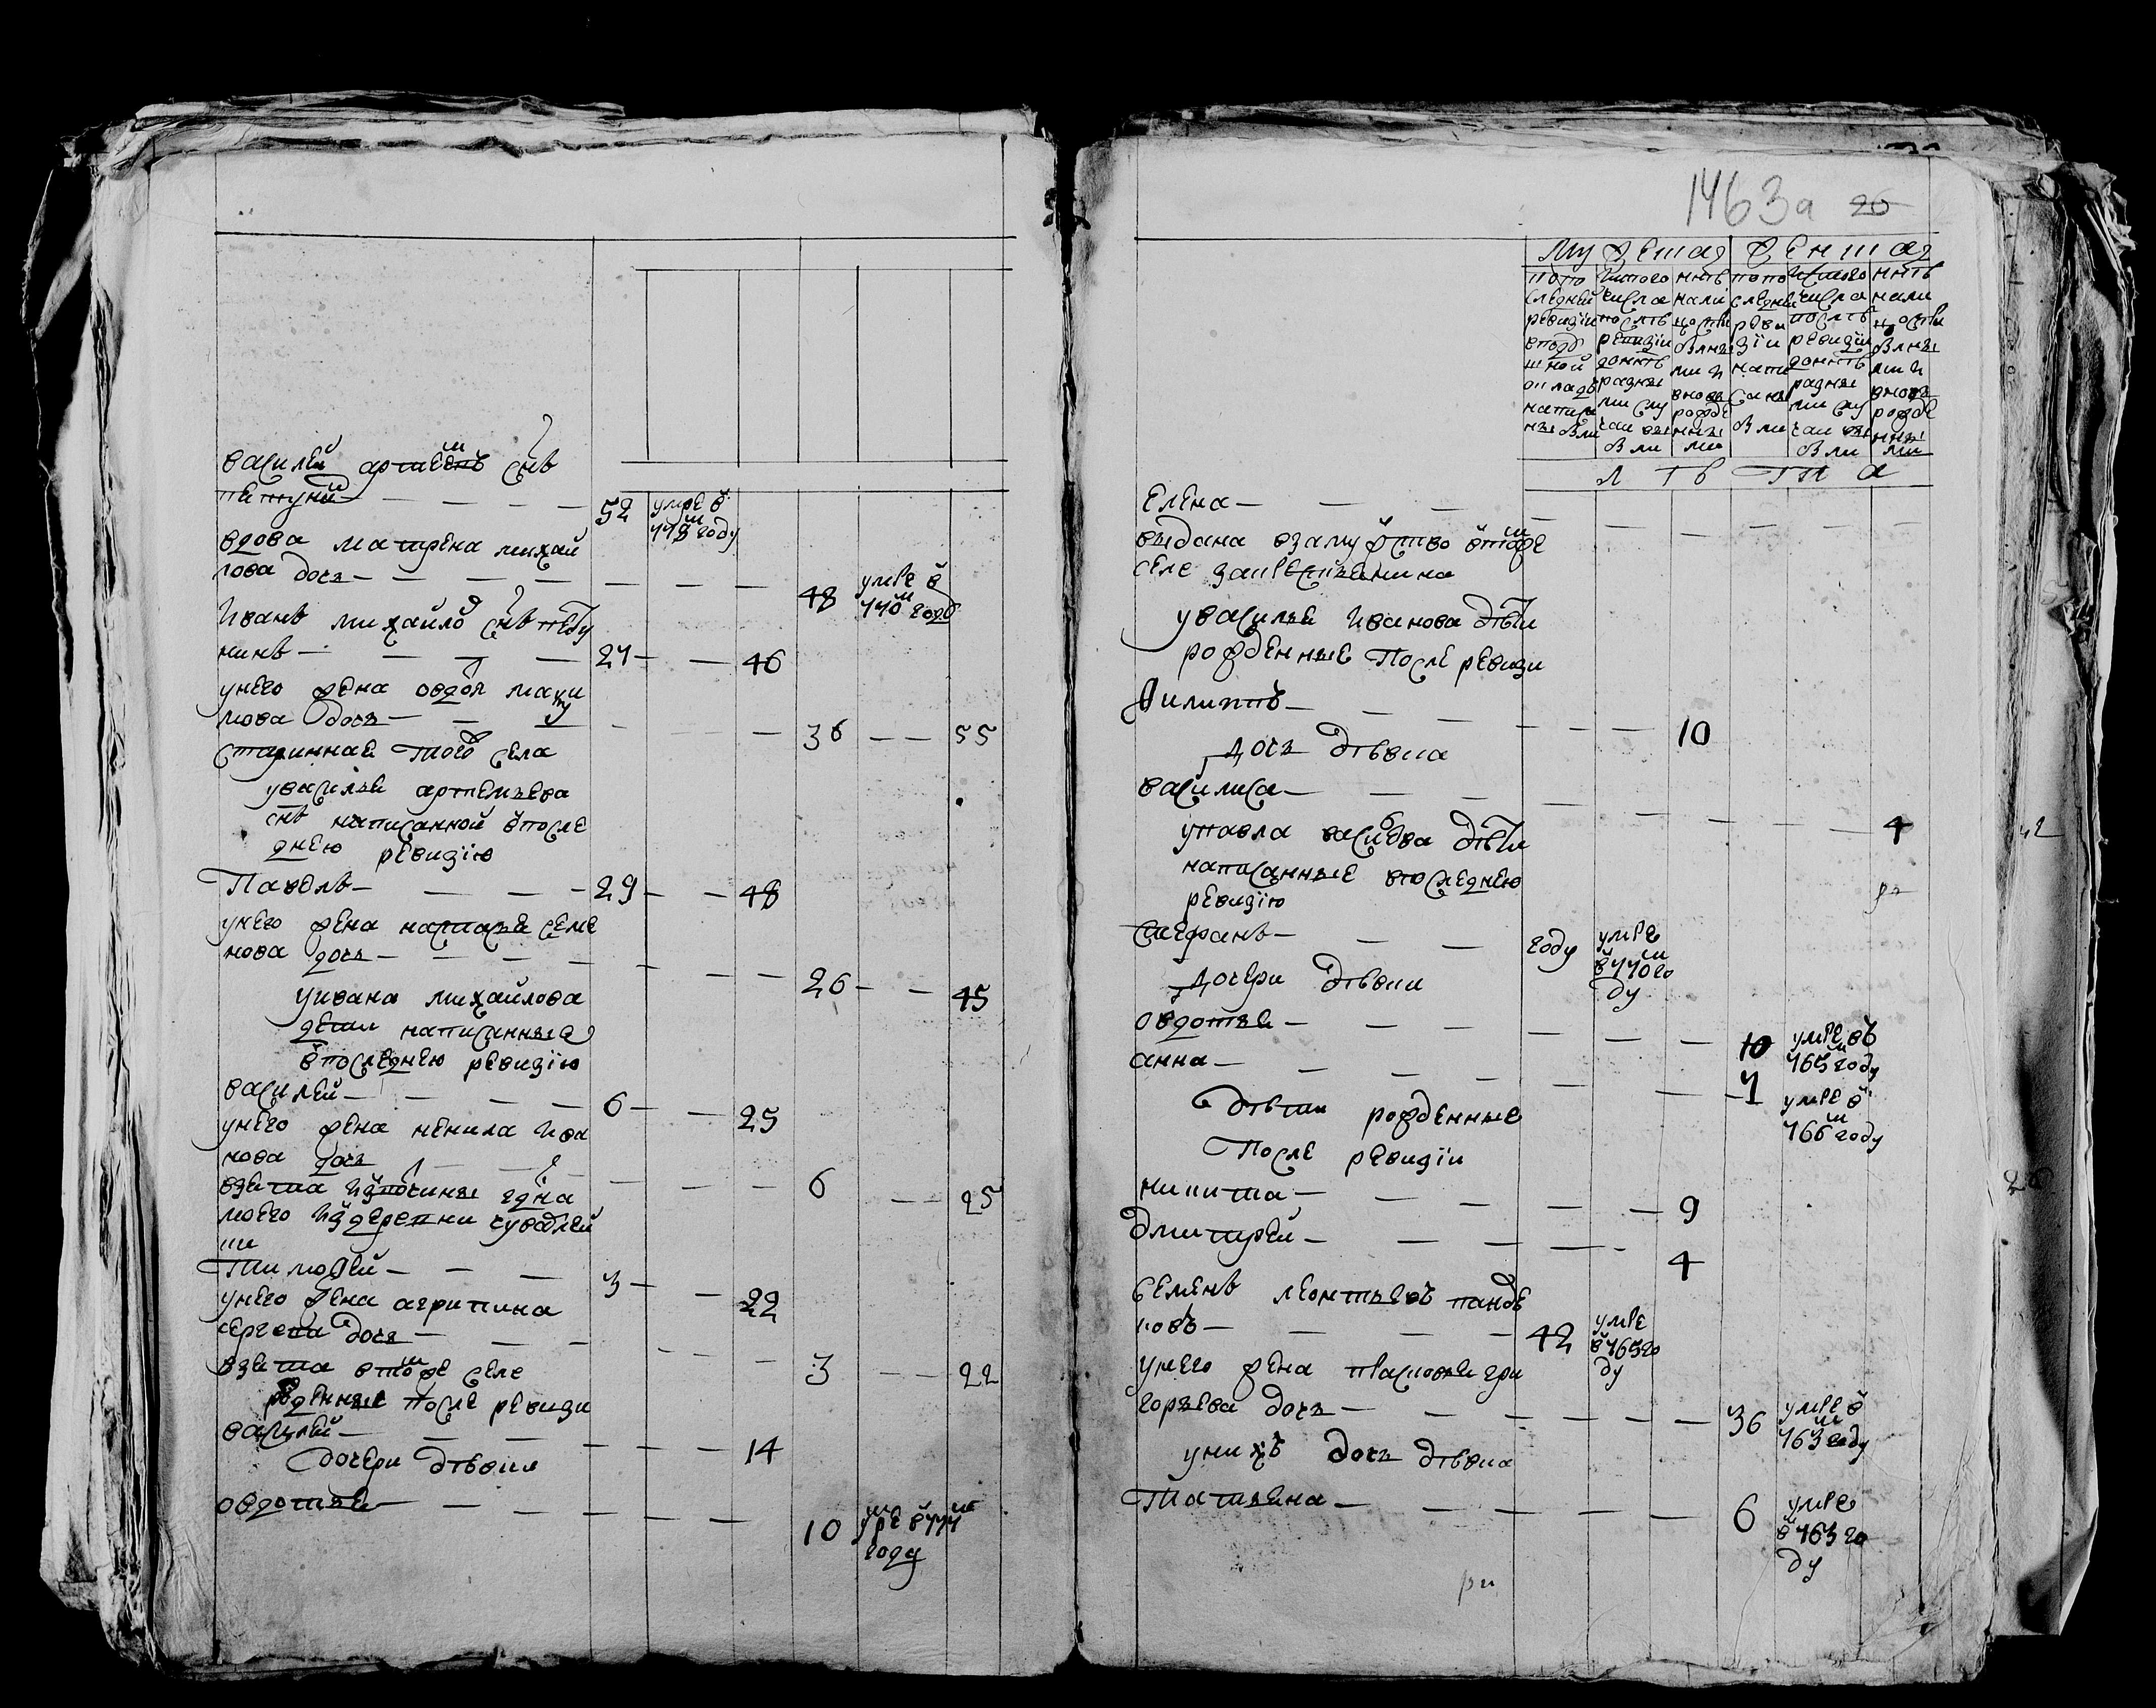 василей артемьевъ снъ
петунин — — — 52 умре в 778м году
вдова матрена михай
лова дочь — — — — — — 48 умре в 770м году
иванъ михайловъ снъ пету
нинъ — — — — 27 — — 46
у него жена овдотья макси
мова дочь — — — — — 36 — — 55
стариннае того ж села
у василья артемьева
снъ написанной в после
днею ревизiю
Павелъ — — — — 29 — — 48
у него жена настасья семе
нова дочь — — — — — — 26 — — 45
у ивана михайлова
дети написанные
в последнею ревизiю
василей — — — — 6 — — 25
у него жена ненила ива
нова дочь — — — — — — 6 — — 25
взята из
моего из деревни
ки
Тимофей — — — 3 — — 22
у него жена агрипина
сергеева дочь — — — — — 3 — — 22
взята в том же селе
рожденные после ревизи
василей — — — — — — 14
дочери девки
овдотья — — — — — 10 умре в 771м году
1463а 26
мужеска женска
по по
следней
ревизiи
в поду
шной
окладъ
написа
нныхъ
ис того
числа
после
ревизiи
до ныне
разны
ми слу
чаи вы
были
ныне
на ли
цо с при
были
ми и
вновь
рожде
нны
ми
по по
следней
реви
зiи
напи
саны
были
ис того
числа
после
ревизiи
до ныне
разны
ми слу
чаи вы
были
ныне
на ли
цо с при
были
ми и
вновь
рожде
нны
ми
лѣта
Елена — — — — — — — — —
выдана в замужство в том же
селе за крестьянина
у василья иванова дѣти
рожденные После ревизи
Филиппъ — — — — — — 10
Дочь дѣвка
василиса — — — — — — — — 4
у павла василева дѣти
написанные в последнею
ревизiю
Степанъ — — — году умре в 770м го ду
Дочери дѣвки
овдотья — — — — — — 10 умре въ 765м году
анна — — — — — — — 7 умре в 766м году
дѣти рожденные
После ревизiи
никита — — — — — 9
дмитрей — — — — — 4
Семенъ леонтьевъ панде
ковъ — — — — 42 умре в 765 го ду
у него жена прасковья гри
горьева дочь — — — — — — 36 умре в 763м году
у нихъ дочь дѣвка
Татьяна — — — — — 6 умре в 763м го ду